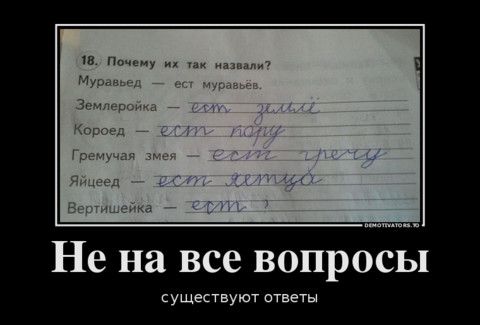 18. Почему их так назвали?
Муравьед — ест муравьёв.
Землеройка — ест землё
Короед — ест кору
Гремучая змея — ест гречу
Яйцеед — ест яетца
Вертишейка — ест ?
DEMOTIVATORS.TO
Не на все вопросы
существуют ответы